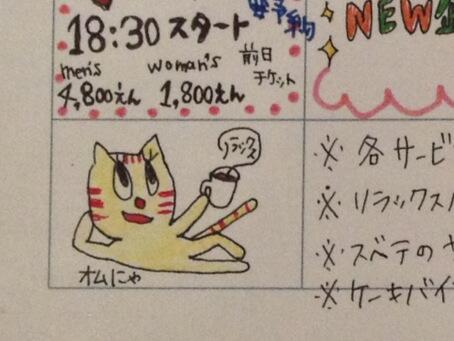 要予約
18:30 スタート
men's
woman's
前日
チケット
4,800えん
1,800えん
NEW
リラックス
オムにゃ
※ 各サービ
※ リラックス
※ スベテの
※ ケーキバイ